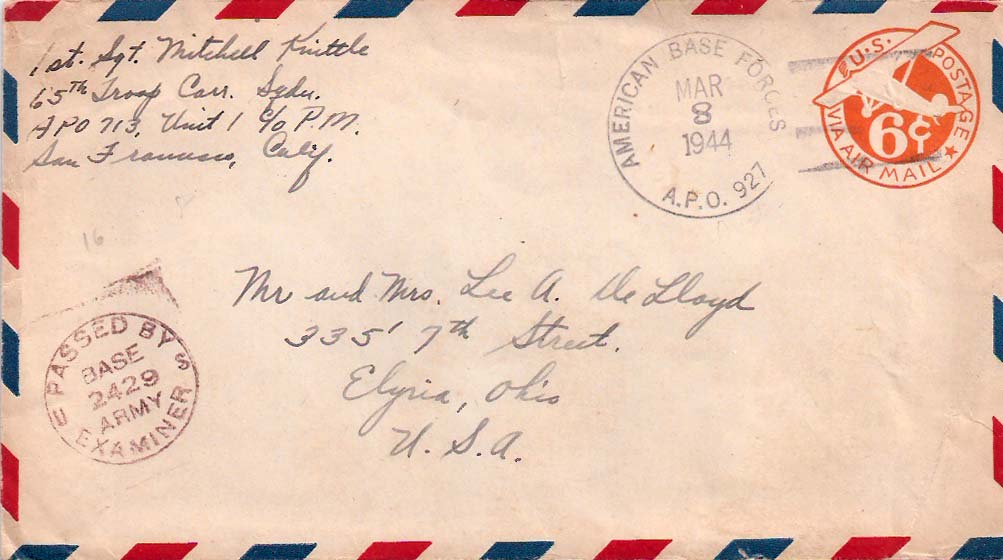 1st. Sgt. Mitchell Kuttle
65th Troop Carr. Sqdn.
APO 713, Unit 1 c/o P.M.
San Francisco, Calif.
AMERICAN BASE FORCES
MAR
8
1944
A.P.O. 927
U.S. POSTAGE
6¢
VIA AIR MAIL
16
Mr and Mrs. Lee A. De Lloyd
335 7th Street.
Elyria, Ohio
U.S.A.
PASSED BY
BASE
2429
ARMY
EXAMINER
U S